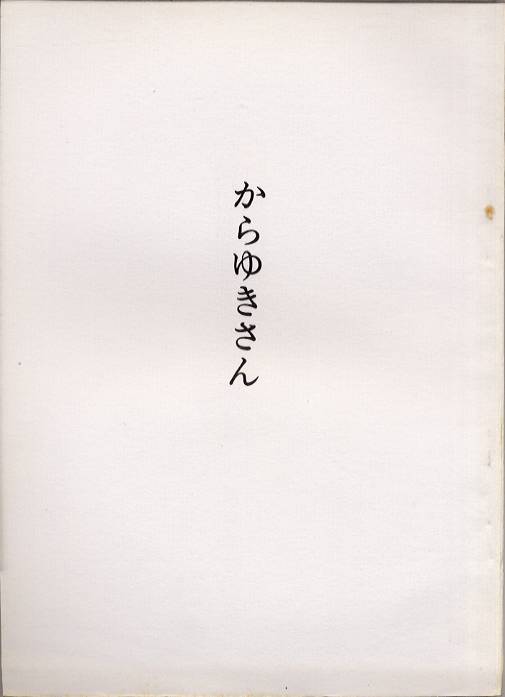 からゆきさん